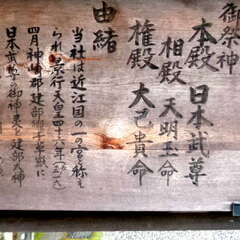 御祭神
本殿 日本武尊
相殿 天明玉命
権殿 大己貴命
由緒
当社は近江国の一の宮と称え
られ景行天皇四十六年(三一六)
四月神崎郡建部郷千草嶽に
日本武尊の御神霊を建部大神